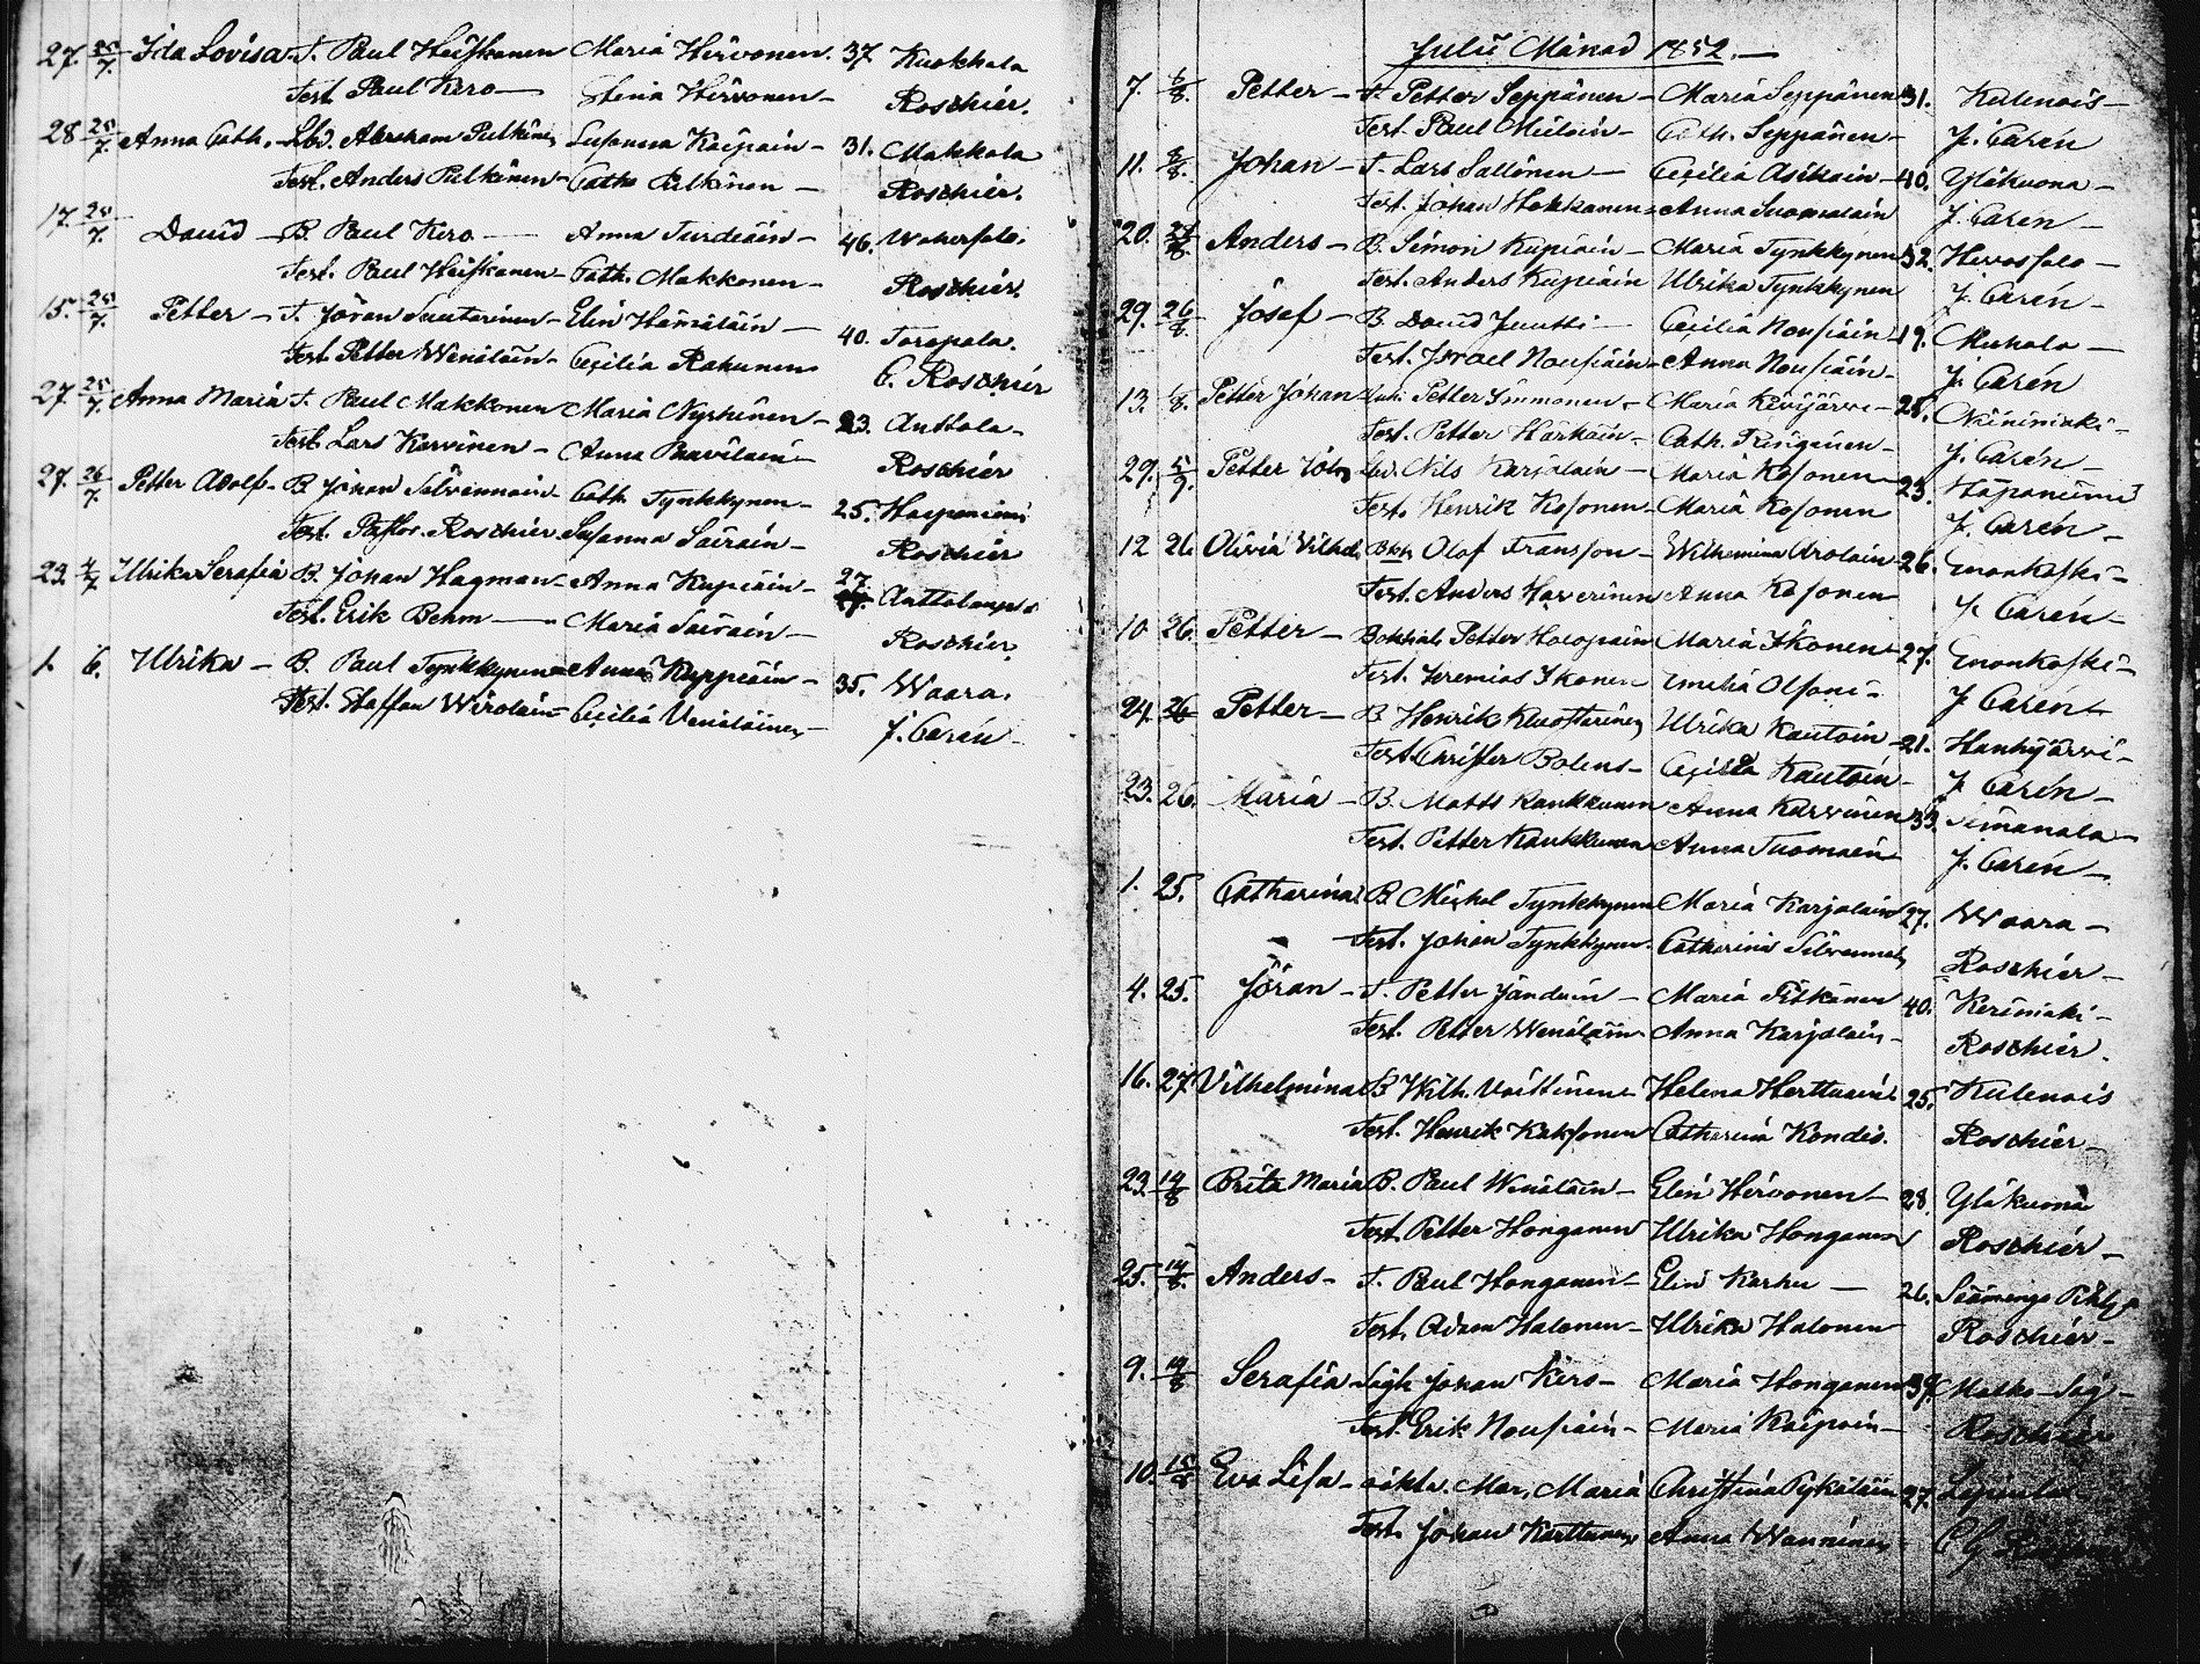 27. 25/7. Ida Lovisa. T. Paul Heiskanen Maria Hirvonen. 37 Kuokkala
Test. Paul Kero — Stina Hirvonen — Roschier.
28 25/7. Anna Cath. — Abraham Pulkinen Susanna Kaipain — 31. Makkola
Test. Anders Pulkinen — Cath. Pulkinen — Roschier.
17. 25/7. David — B. Paul Kero — Anna Turdiain — 46.
Test. Paul Heiskanen — Cath. Makkonen — Roschier.
15. 25/7. Petter — T. Jöran Suutarinen — Elin Hämäläin — 40. Toropala.
Test. Petter Wenäläin — Cecilia Rahunen C. Roschier
27. 25/7. Anna Maria T. Paul Makkonen Maria Nyrhinen — 23. Anttola —
Test. Lars Karvinen — Anna Paavilain — Roschier
27. 26/7. Petter Adolf — B. Johan Silvennoin — Cath. Tynkkynen — 25. Haapaniemi
Test. Pastor. Roschier Susanna Sairain — Roschier
23. 4/7 Ulrika Serafia B. Johan Hagman — Anna Kupiain — 27.
Test. Erik Behm — Maria Sairain — Roschier.
1. 6. Ulrika — B. Paul Tynkkynen — Anna Kuppiain — 35. Waara.
Test. Staffan Wirolain — Cecilia Venäläinen — J. Carén —
Julii Månad 1852. —
7. 6/8. Petter — T. Petter Seppänen — Maria Seppänen 31. Kulennois —
Test. Paul — Cath. Seppänen — J. Carén
11. 8/8. Johan — T. Lars Sallinen — Cecilia Asikain — 40. Yläkuona —
Test. Johan Hokkanen — Anna Suomalain J. Carén —
20. Anders — B. Simon Kupiain — Maria Tynkkynen 32.
Test. Anders Kupiain Ulrika Tynkkynen J. Carén —
29. 26/8. Josef — B. David Juutti — Cecilia Nousiain — 19. Muhola —
Test. Israel Nousiain — Anna Nousiain — J. Carén
13. Petter Johan Petter Immonen — Maria Kivijärvi — 25.
Test. Petter Härkäin — Cath. — J. Carén —
29. 5/9. Petter Joh. Nils Karjalain — Maria Kosonen 23. Haapaniemi
Test. Henrik Kosonen — Maria Kosonen J. Carén —
12 26. Olivia Vilhel. Olof Fransson — Wilhemina Arolain 26. Enonkoski —
Test. Anders Haverinen Anna Kosonen J. Carén —
10 26. Petter — Petter Holopain Maria Ikonen — 27. Enonkoski —
Test. Jeremias Ikonen — J. Carén
24. 26 Petter — B. Henrik Kluostarinen Ulrika Kautoin — 21. Hanhijärvi —
Test. Christer Bolens — Cecilia Kautoin — J. Carén —
23. 26. Maria — B. Matts Kaukkunen Anna Karvinen 33. Simanala —
Test. Petter Kaukkunen Anna Tuomain J. Carén —
1. 25. Catharina B. Michel Tynkkynen Maria Karjalain 27. Waara —
Test. Johan Tynkkynen. Catharina Silvennoi Roschier —
4. 25. Jöran — T. Petter — Maria Pitkänen 40. Kerimäki —
Test. Petter Wenäläin Anna Karjalain — Roschier.
16. 27 Vilhelmina B. Wilh. Voittinen — Helena Herttuain 25. Kulennois
Test. Henrik Kaksonen Catharina Kondis. Roschier —
23. 14/8 Brita Maria B. Paul Wenäläin — Elin Hirvonen — 28. Yläkuona
Test. Petter Honganen Ulrika Honganen Roschier —
25. 14/8. Anders — T. Paul Honganen — Elin Karhu — 26. Säämingi
Test. Adam Halonen — Ulrika Halonen Roschier —
9. 14/8 Serafia Johan Kero — Maria Honganen 39.
Test. Erik Nousiain — Maria Kaipain — Roschier
10. 15/8 Eva Lisa — oäkta. Mor, Maria Christina Pykäläin 27.
Test. Johan Karttunen Anna Wanninen